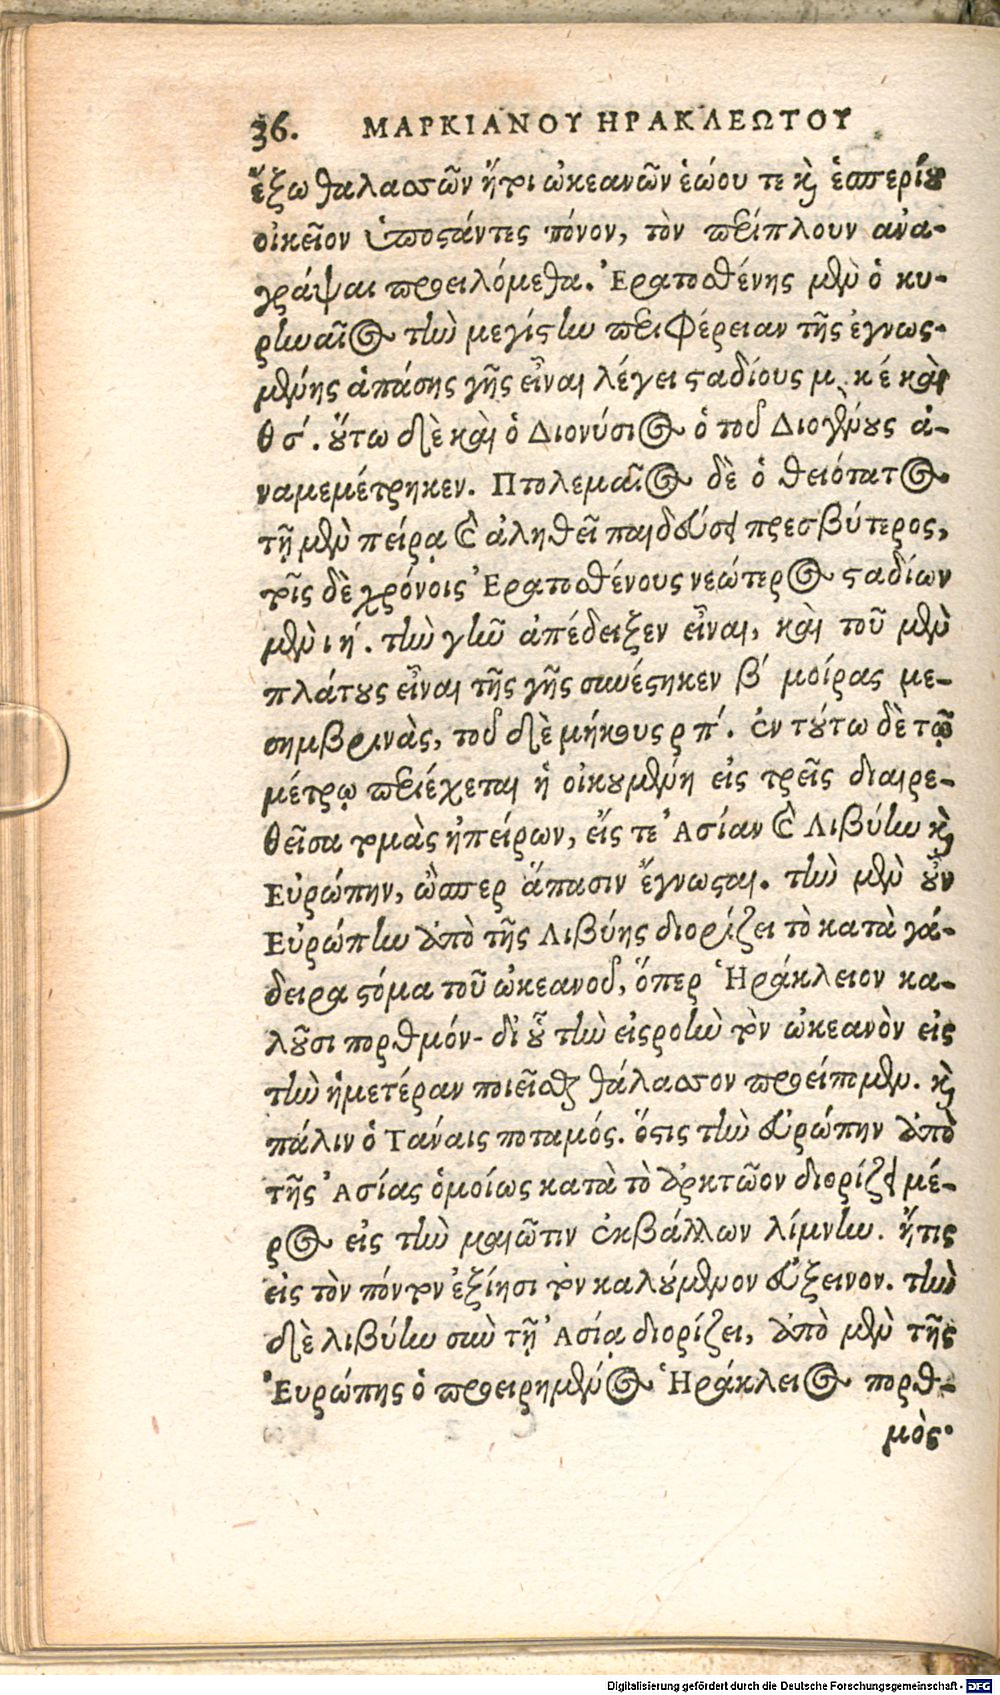 36. ΜΑΡΚΙΑΝΟΥ ΗΡΑΚΛΕΩΤΟΥ
ἔξω θαλασσῶν ἤτοι ὠκεανῶν ἑώου τε καὶ ἑσπερίου
οἰκεῖον ὑποστάντες πόνον, τὸν περίπλουν ἀνα-
γράψαι προειλόμεθα. Ἐρατοσθένης μὲν ὁ κυ-
ρηναῖος τὴν μεγίστην περιφέρειαν τῆς ἐγνωσ-
μένης ἁπάσης γῆς εἶναι λέγει σταδίους μ κέ καὶ
θ σ΄. οὕτω δὲ καὶ ὁ Διονύσιος ὁ τοῦ Διογένους ἀ-
ναμεμέτρηκεν. Πτολεμαῖος δὲ ὁ θειότατος
τῇ μὲν πείρᾳ καὶ ἀληθεῖ παιδεύσει πρεσβύτερος,
τοῖς δὲ χρόνοις Ἐρατοσθένους νεώτερος σταδίων
μὲν ι ή. τὴν γῆν ἀπέδειξεν εἶναι, καὶ τοῦ μὲν
πλάτους εἶναι τῆς γῆς συνέστηκεν β΄ μοίρας με-
σημβρινὰς, τοῦ δὲ μήκους ρ π΄. ἐν τούτω δὲ τῷ
μέτρῳ περιέχεται ἡ οἰκουμένη εἰς τρεῖς διαιρε-
θεῖσα τομὰς ἠπείρων, εἴς τε Ἀσίαν καὶ Λιβύην καὶ
Εὐρώπην, ὥσπερ ἅπασιν ἔγνωσται. τὴν μὲν οὖν
Εὐρώπην ἀπὸ τῆς Λιβύης διορίζει τὸ κατὰ γά-
δειρα στόμα τοῦ ὠκεανοῦ, ὅπερ Ἡράκλειον κα-
λοῦσι πορθμόν- δι' οὗ τὴν εἰσροὴν τὸν ὠκεανὸν εἰς
τὴν ἡμετέραν ποιεῖσθαι θάλασσον προείπομεν. καὶ
πάλιν ὁ Τανάις ποταμός. ὅστις τὴν εὐρώπην ἀπὸ
τῆς Ἀσίας ὁμοίως κατὰ τὸ ἀρκτῶον διορίζει μέ-
ρος εἰς τὴν μαιῶτιν ἐκβάλλων λίμνην. ἥτις
εἰς τὸν πόντον ἐξίησι τὸν καλούμενον εὔξεινον. τὴν
δὲ λιβύην σὺν τῇ Ἀσίᾳ διορίζει, ἀπὸ μὲν τῆς
Εὐρώπης ὁ προειρημένος Ἡράκλειος πορθ-
μὸς·
Digitalisierung gefördert durch die Deutsche Forschungsgemeinschaft - DFG